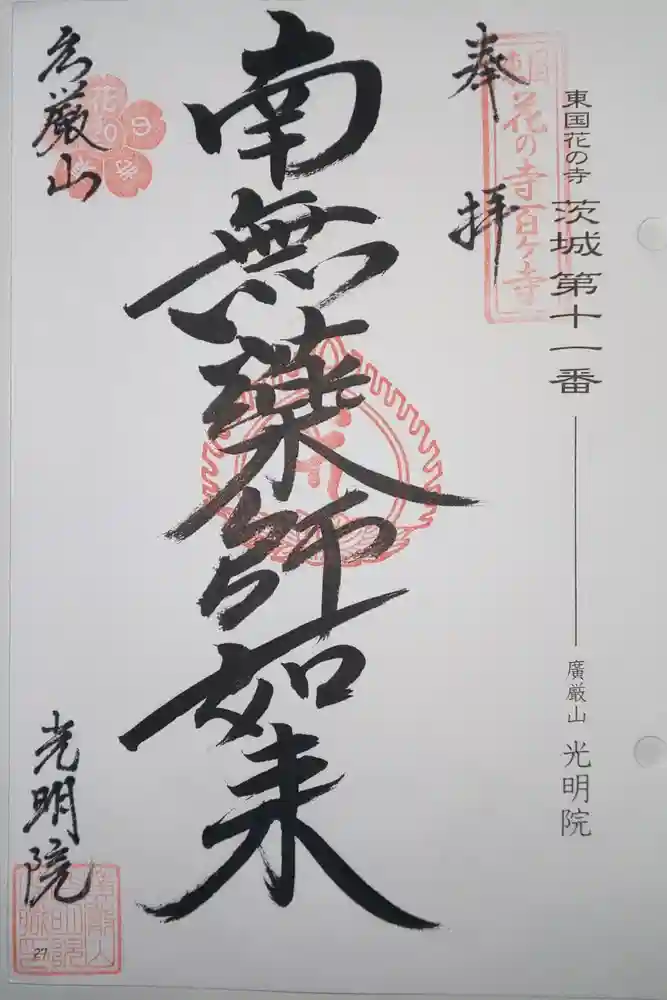 東国花の寺 茨城第十一番 廣厳山 光明院
奉拝
東国
花の寺百ヶ寺
南無藥師如来
広厳山
花の寺
光明院
27